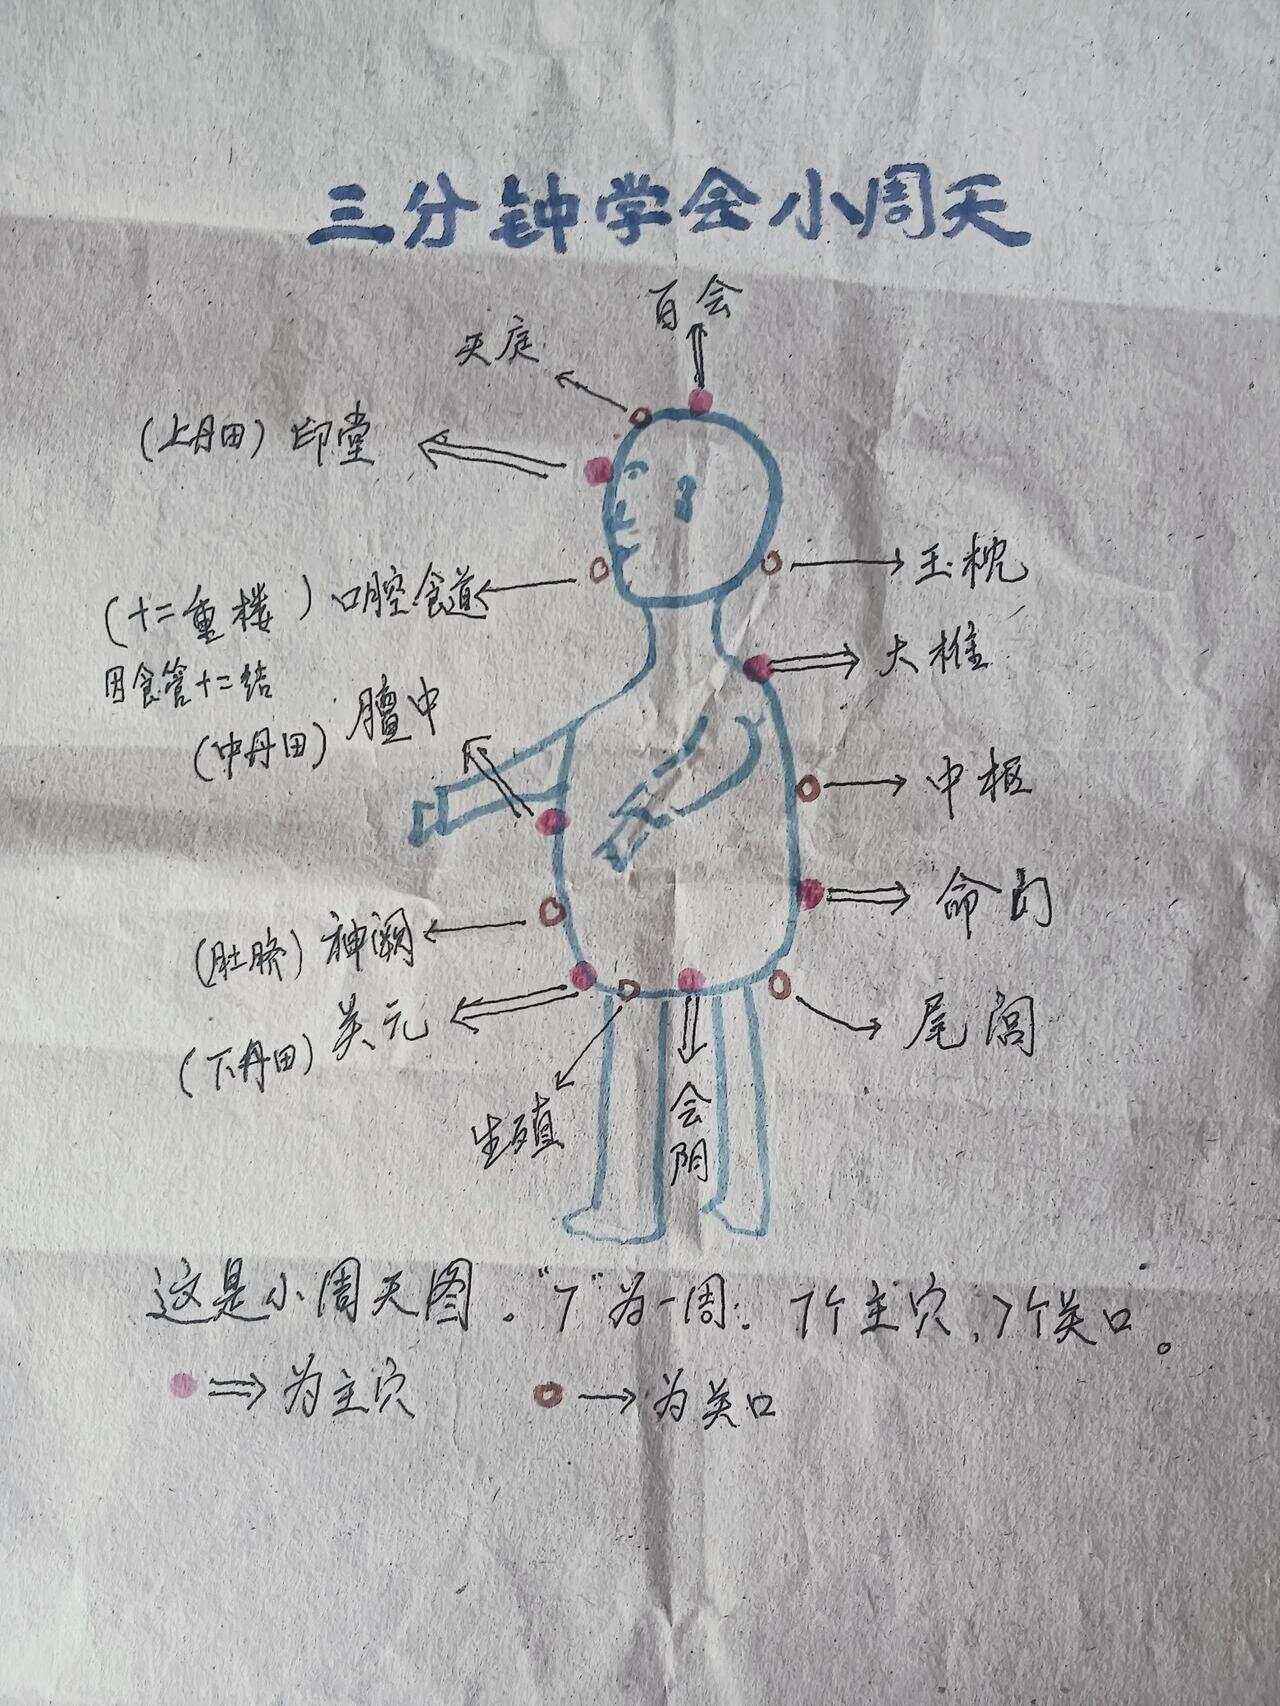 三分钟学会小周天
百会
天庭
(上丹田) 印堂
玉枕
(十二重楼) 口腔食道
因食管十二结
大椎
(中丹田) 膻中
中枢
命门
(肚脐) 神阙
(下丹田) 关元
尾闾
生殖
会阴
这是小周天图。“7”为一周：7个主穴，7个关口。
为主穴
为关口